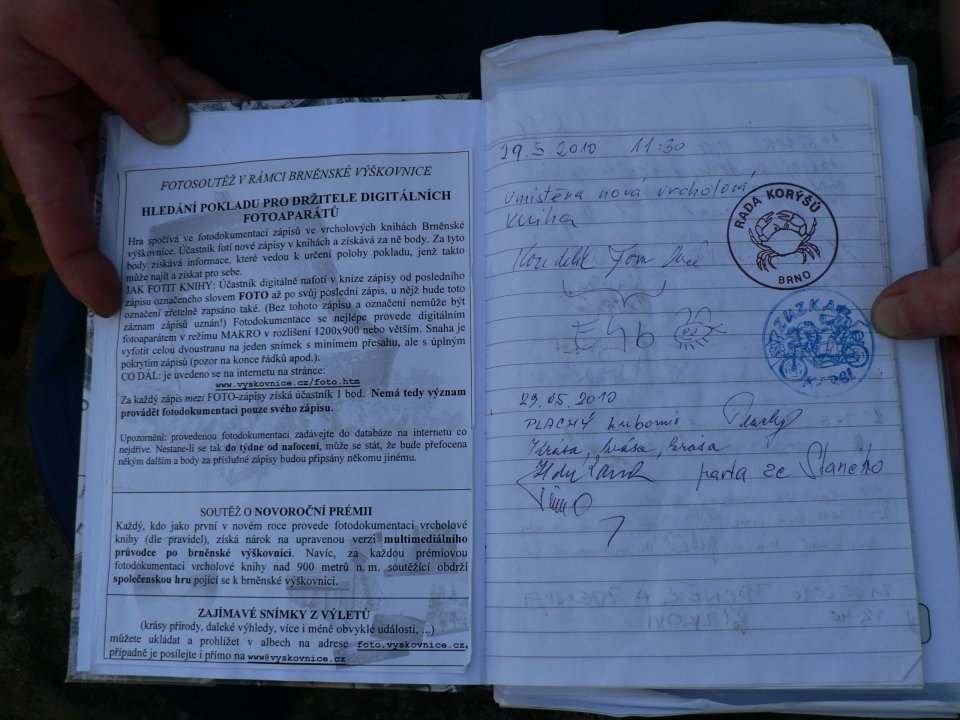 FOTOSOUTĚŽ V RÁMCI BRNĚNSKÉ VÝŠKOVNICE
HLEDÁNÍ POKLADU PRO DRŽITELE DIGITÁLNÍCH
FOTOAPARÁTŮ
Hra spočívá ve fotodokumentaci zápisů ve vrcholových knihách Brněnské
výškovnice. Účastník fotí nové zápisy v knihách a získává za ně body. Za tyto
body získává informace, které vedou k určení polohy pokladu, jenž takto
může najít a získat pro sebe.
JAK FOTIT KNIHY: Účastník digitálně nafotí v knize zápisy od posledního
zápisu označeného slovem FOTO až po svůj poslední zápis, u nějž bude toto
označení zřetelně zapsáno také. (Bez tohoto zápisu a označení nemůže být
záznam zápisů uznán!) Fotodokumentace se nejlépe provede digitálním
fotoaparátem v režimu MAKRO v rozlišení 1200x900 nebo větším. Snaha je
vyfotit celou dvoustranu na jeden snímek s minimem přesahu, ale s úplným
pokrytím zápisů (pozor na konce řádků apod.).
CO DÁL: je uvedeno se na internetu na stránce:
www.vyskovnice.cz/foto.htm
Za každý zápis mezi FOTO-zápisy získá účastník 1 bod. Nemá tedy význam
provádět fotodokumentaci pouze svého zápisu.
Upozornění: provedenou fotodokumentaci zadávejte do databáze na internetu co
nejdříve. Nestane-li se tak do týdne od nafocení, může se stát, že bude přefocena
někým dalším a body za příslušné zápisy budou připsány někomu jinému.
SOUTĚŽ O NOVOROČNÍ PRÉMII
Každý, kdo jako první v novém roce provede fotodokumentaci vrcholové
knihy (dle pravidel), získá nárok na upravenou verzi multimediálního
průvodce po brněnské výškovnici. Navíc, za každou prémiovou
fotodokumentaci vrcholové knihy nad 900 metrů n. m. soutěžící obdrží
společenskou hru pojící se k brněnské výškovnici.
ZAJÍMAVÉ SNÍMKY Z VÝLETŮ
(krásy přírody, daleké výhledy, více i méně obvyklé události, ...)
můžete ukládat a prohlížet v albech na adrese foto.vyskovnice.cz,
případně je posílejte i přímo na www@vyskovnice.cz
29.5 2010 11:30
Umístěna nová vrcholová
kniha
RADA KORÝŠŮ
BRNO
ZUZKA
29.05.2010
PLACHÝ Lubomír Plachý
parta ze Starého